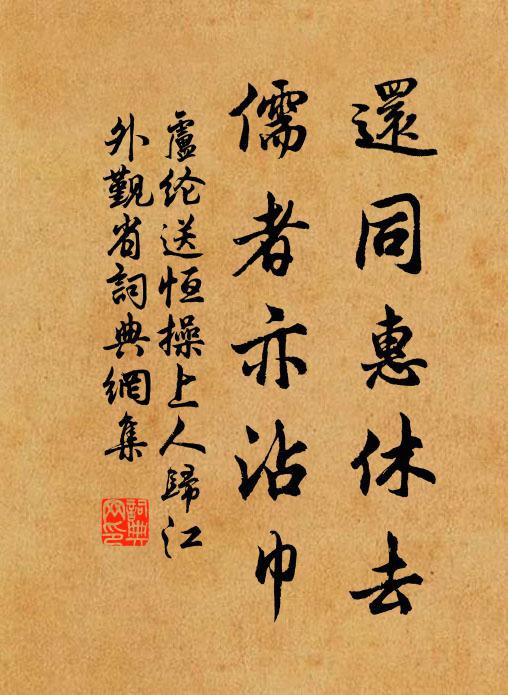 還同惠休去
儒者亦沾巾
盧纶送恒操上人歸江
外觐省詞典網集
詞典
网印